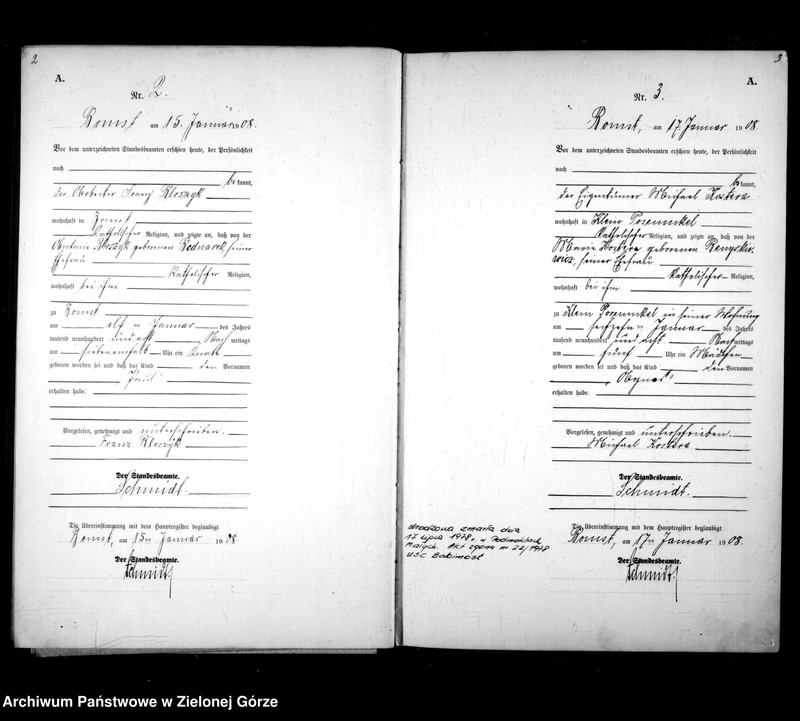 2
A.
Nr. 2.
Bomst am 15. Januar 1908.
Vor dem unterzeichneten Standesbeamten erschien heute, der Persönlichkeit
nach
bekannt,
der Arbeiter Franz Kloszyk
wohnhaft in Bomst
katholischer Religion, und zeigte an, daß von der
Antonie Kloszyk geborenen Bednarek, seiner
Ehefrau
katholischer Religion,
wohnhaft bei ihm
zu Bomst
am elf ten Januar des Jahres
tausend neunhundert und acht Nachmittags
um sieben einhalb Uhr ein Knabe
geboren worden sei und daß das Kind den Vornamen
Paul
erhalten habe.
Vorgelesen, genehmigt und unterschrieben.
Franz Kloszyk
Der Standesbeamte.
Schmidt.
Die Übereinstimmung mit dem Hauptregister beglaubigt
Bomst, am 15ten Januar 1908.
Der Standesbeamte.
Schmidt
3
A.
Nr. 3.
Bomst, am 17. Januar 1908.
Vor dem unterzeichneten Standesbeamten erschien heute, der Persönlichkeit
nach
bekannt,
der Eigentümer Michael Kostera
wohnhaft in Klein Posemukel
katholischer Religion, und zeigte an, daß von der
Marie Kostera geborenen
seiner Ehefrau
katholischer Religion,
wohnhaft bei ihm
zu Klein Posemukel in seiner Wohnung
am sechzehn ten Januar des Jahres
tausend neunhundert und acht Nachmittags
um fünf Uhr ein Mädchen
geboren worden sei und daß das Kind den Vornamen
"Agnes"
erhalten habe.
Vorgelesen, genehmigt und unterschrieben.
Michael Kostera
Der Standesbeamte.
Schmidt.
Die Übereinstimmung mit dem Hauptregister beglaubigt
Bomst, am 17ten Januar 1908.
Der Standesbeamte.
Schmidt
Urodzona zmarła dnia
17 lipca 1978 r. w Podmoklach
Małych. Akt zgonu nr 22/1978
USC Babimost
Archiwum Państwowe w Zielonej Górze